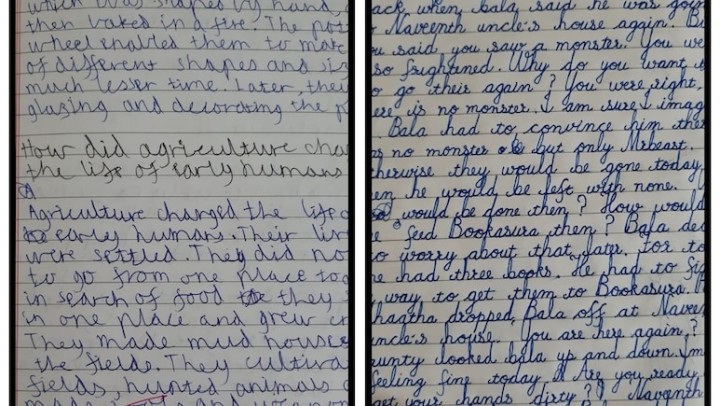 which was shaped by hand,
then baked in a fire. The pot
wheel enabled them to make
of different shapes and si
much lesser time. Later, they
glazing and decorating the p
How did agriculture cha
the life of early humans
Agriculture changed the life o
early humans. Their li
were settled. They did no
to go from one place to
in search of food they
in one place and grew c
They made mud house
the fields. They cultiva
fields, hunted animals
made and
ack when bala said he was goin
Naveenth uncle's house again. B
ou said you saw a monster. You we
so frightened. Why do you want
o go their again? You were right,
ere is no monster. I am sure I imag
Bala had to convince him ther
no monster but only Mrbeast.
herwise they would be gone today,
en he would be left with none.
would be done then? How would
feed Bookasura then? Bala dec
o worry about that later. for to
e had three books. He had to fi
way to get them to Bookasura.
hagtha dropped Bala off at Naveen
uncle's house. You are here again?
aunty looked bala up and down. I'm
feeling fine today. Are you ready
get your hands dirty? Naveenth